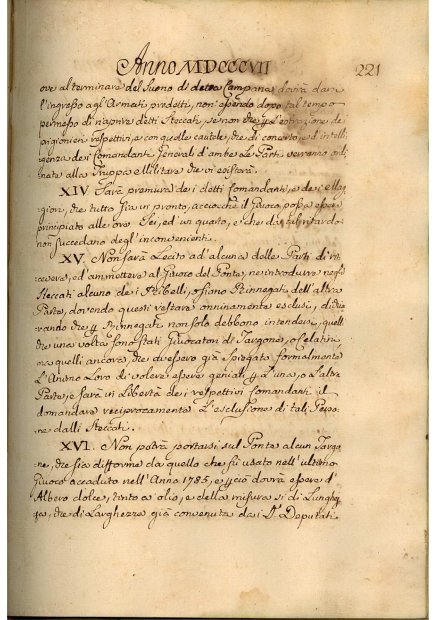 Anno MDCCCVII 221
ove al terminare del Suono di detta Campana dovrà darsi
l'ingresso agl'Armati predetti, non essendo dopo tal tempo
permesso di riaprire detti Steccati, se non che p l'estrazione de
prigionieri respettivi, e con quelle cautele, che di concerto, ed intelli
genza de i Comandanti Generali d'ambe le Parti verranno ordi
nate alla Truppa Militare che vi esisterà.
XIV. Sarà premura de i detti Comandanti, e de i
che tutto sia in pronto, acciocchè il Giuoco possa essere
principiato alle ore Sei, ed un quarto, e che da ritardo
non succedano degl'inconvenienti.
XV. Non sarà Lecito ad alcuna delle Parti di ri
cevere, ed ammettere al Giuoco del Ponte, ne introdurre negl
Steccati alcuno de i Ribelli, o siano Rinnegati dell'altra
Parte, dovendo questi restare onninamente esclusi, dichia
rando che p Rinnegati non solo debbono intendersi quelli
che una volta sono stati Giuocatori di Targone, o Celatin
ma quelli ancora, che avessero già Spiegato formalmente
L'Animo Loro di volere essere geniali p L'una, o L'altra
Parte, e sarà in Libertà de i respettivi Comandanti il
domandare reciprocamente L'esclusione di tali Perso
ne dalli Steccati.
XVI. Non potrà portarsi sul Ponte alcun Targo
ne, che sia difforme da quello che fù usato nell'ultimo
Giuoco accaduto nell'Anno 1785, e p ciò dovrà essere d'
Albero dolce, tinto a olio, e della misura sì di Lunghez
za, che di Larghezza già convenuta da i SS.ri Deputati.